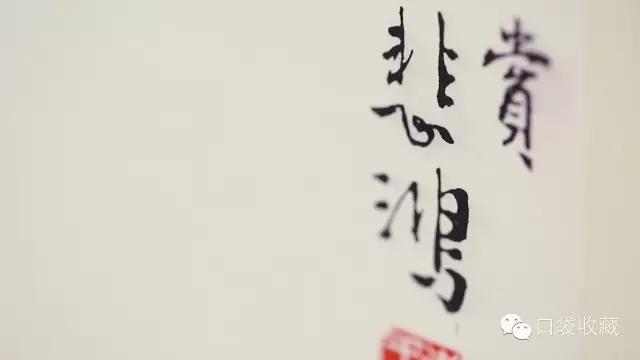 賞
悲鴻
口袋收藏